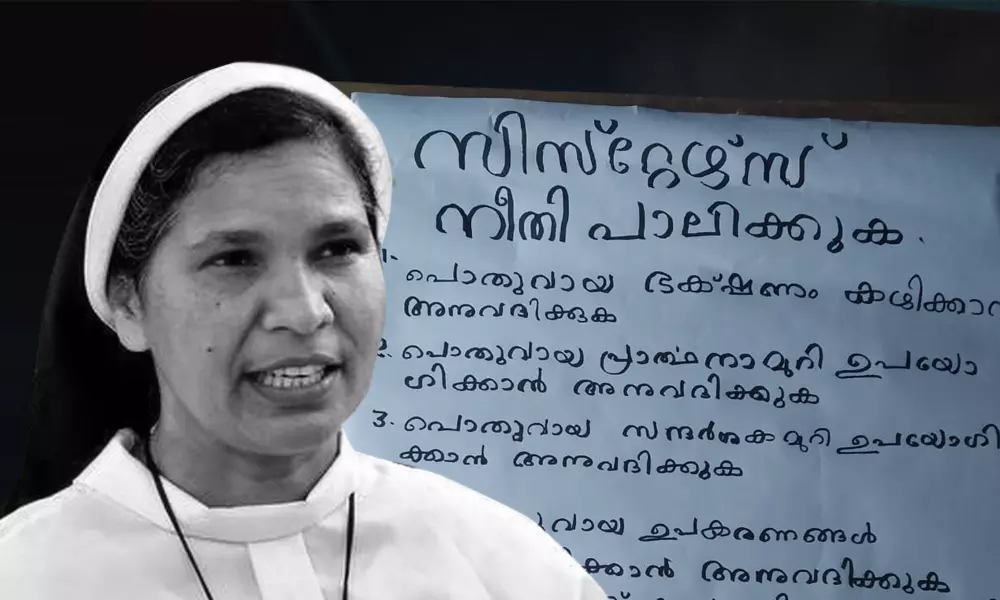 സിസ്റ്റേഴ്സ്
നീതി പാലിക്കുക.
1. പൊതുവായ ഭക്ഷണം
അനുവദിക്കുക
2. പൊതുവായ പ്രാത്ഥനാമുറി ഉപയോ
ഗിക്കാൻ അനുവദിക്കുക
3. പൊതുവായ സന്ദർശകമുറി ഉപയോഗി
ക്കാൻ അനുവദിക്കുക
ഉപകരണങ്ങൾ
അനുവദിക്കുക